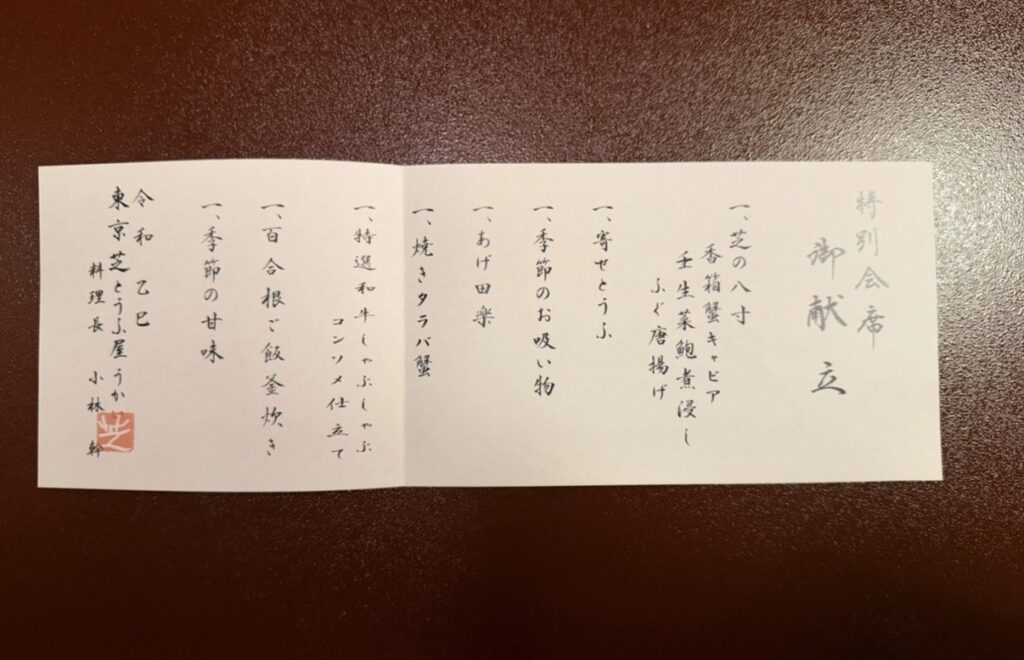 特別会席
御献立
一、芝の八寸
香箱蟹キャビア
壬生菜鮑煮浸し
ふぐ唐揚げ
一、寄せとうふ
一、季節のお吸い物
一、あげ田楽
一、焼きタラバ蟹
一、特選和牛しゃぶしゃぶ
コンソメ仕立て
一、百合根ご飯釜炊き
一、季節の甘味
令和乙巳
東京芝とうふ屋うかい
料理長 小林 幹
芝